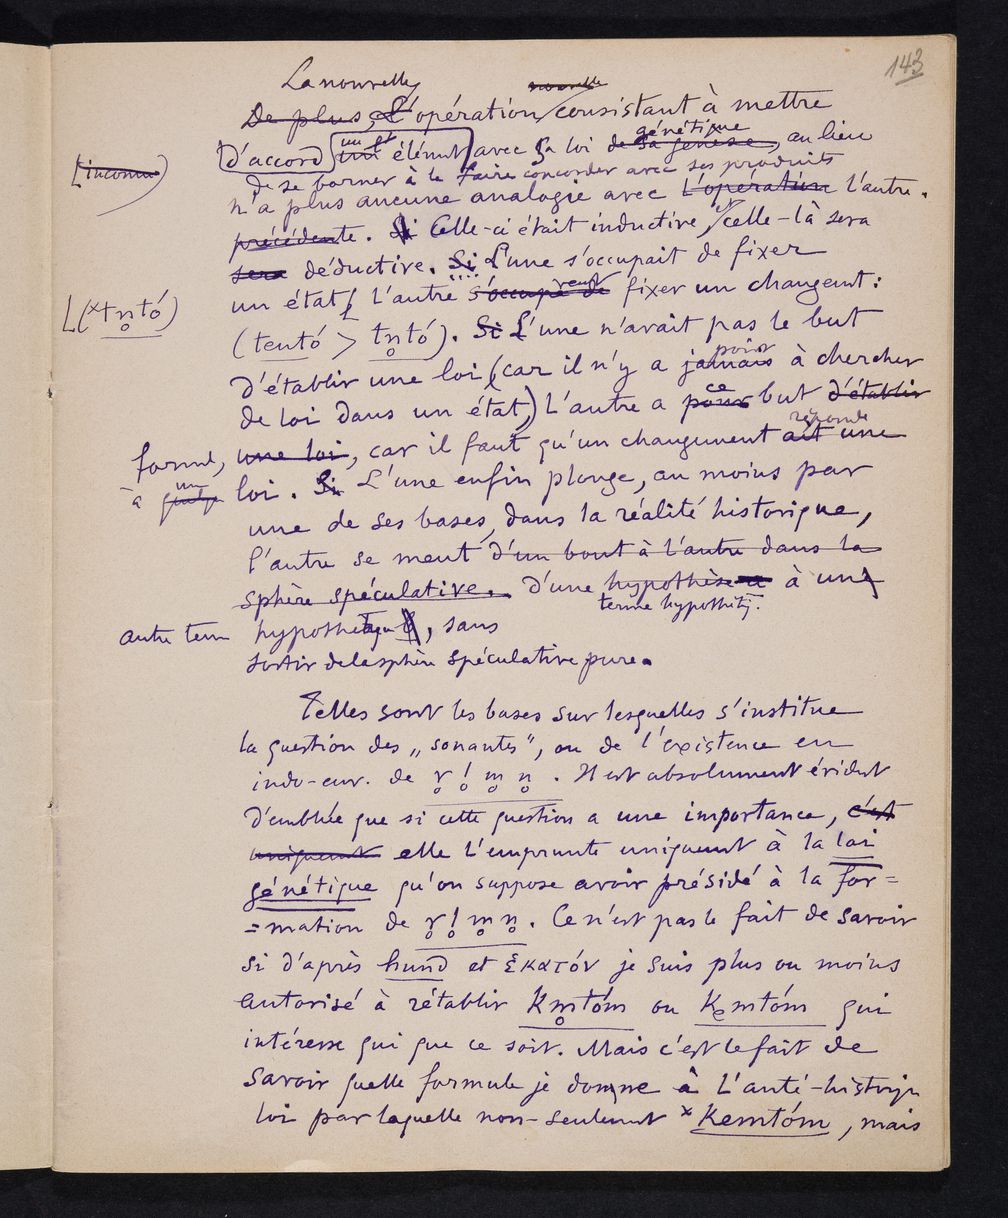 143
La nouvelle nouvelle
De plus, l'opération consistant à mettre
[inconnu] d'accord un état élément avec sa loi de sa genèse génétique, au lieu
de se borner à le faire concorder avec ses produits
n'a plus aucune analogie avec l'opération l'autre.
précédente. Si Celle-ci était inductive, et celle-là sera
sera déductive. Si L'une s'occupait de fixer
L(*tn̥tó) un état, l'autre s'occupe de veut fixer un changemt:
(tentó > tn̥tó). Si L'une n'avait pas le but
d'établir une loi (car il n'y a jamais point à chercher
de loi dans un état) L'autre a pour ce but d'établir
une loi, car il faut qu'un changement ait une réponde
formel, à un loi. Si L'une enfin plonge, au moins par
une de ses bases, dans la réalité historique,
l'autre se meut d'un bout à l'autre dans la
sphère spéculative. D'une hypothèse à un
terme hypothétiq.
autre term hypothétique, sans
sortir de la sphère spéculative pure.
Telles sont les bases sur lesquelles s'institue
la question des „sonantes", ou de l'existence en
indo-eur. de r̥ l̥ m̥ n̥. Il est absolument évident
d'emblée que si cette question a une importance, c'est
uniquement elle l'emprunte uniquemt à la loi
génétique qu'on suppose avoir présidé à la for=
=mation de r̥ l̥ m̥ n̥. Ce n'est pas le fait de savoir
si d'après hund et ἑκατόν je suis plus ou moins
autorisé à rétablir km̥tóm ou kemtóm qui
intéresse qui que ce soit. Mais c'est le fait de
savoir quelle formule je donne à L'anté-historiq
loi par laquelle non-seulement *kemtóm, mais